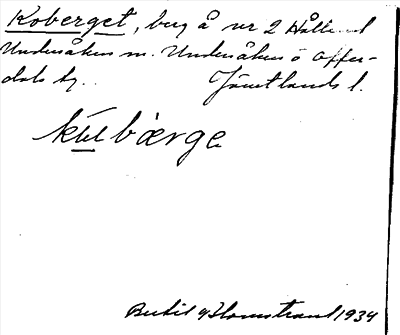 Koberget, berg å nr 2 Hålland
Undersåkers sn. Undersåkers o Offer-
dals tg. Jämtlands l.
kŭlbærge
Bertil Flemstrand 1934